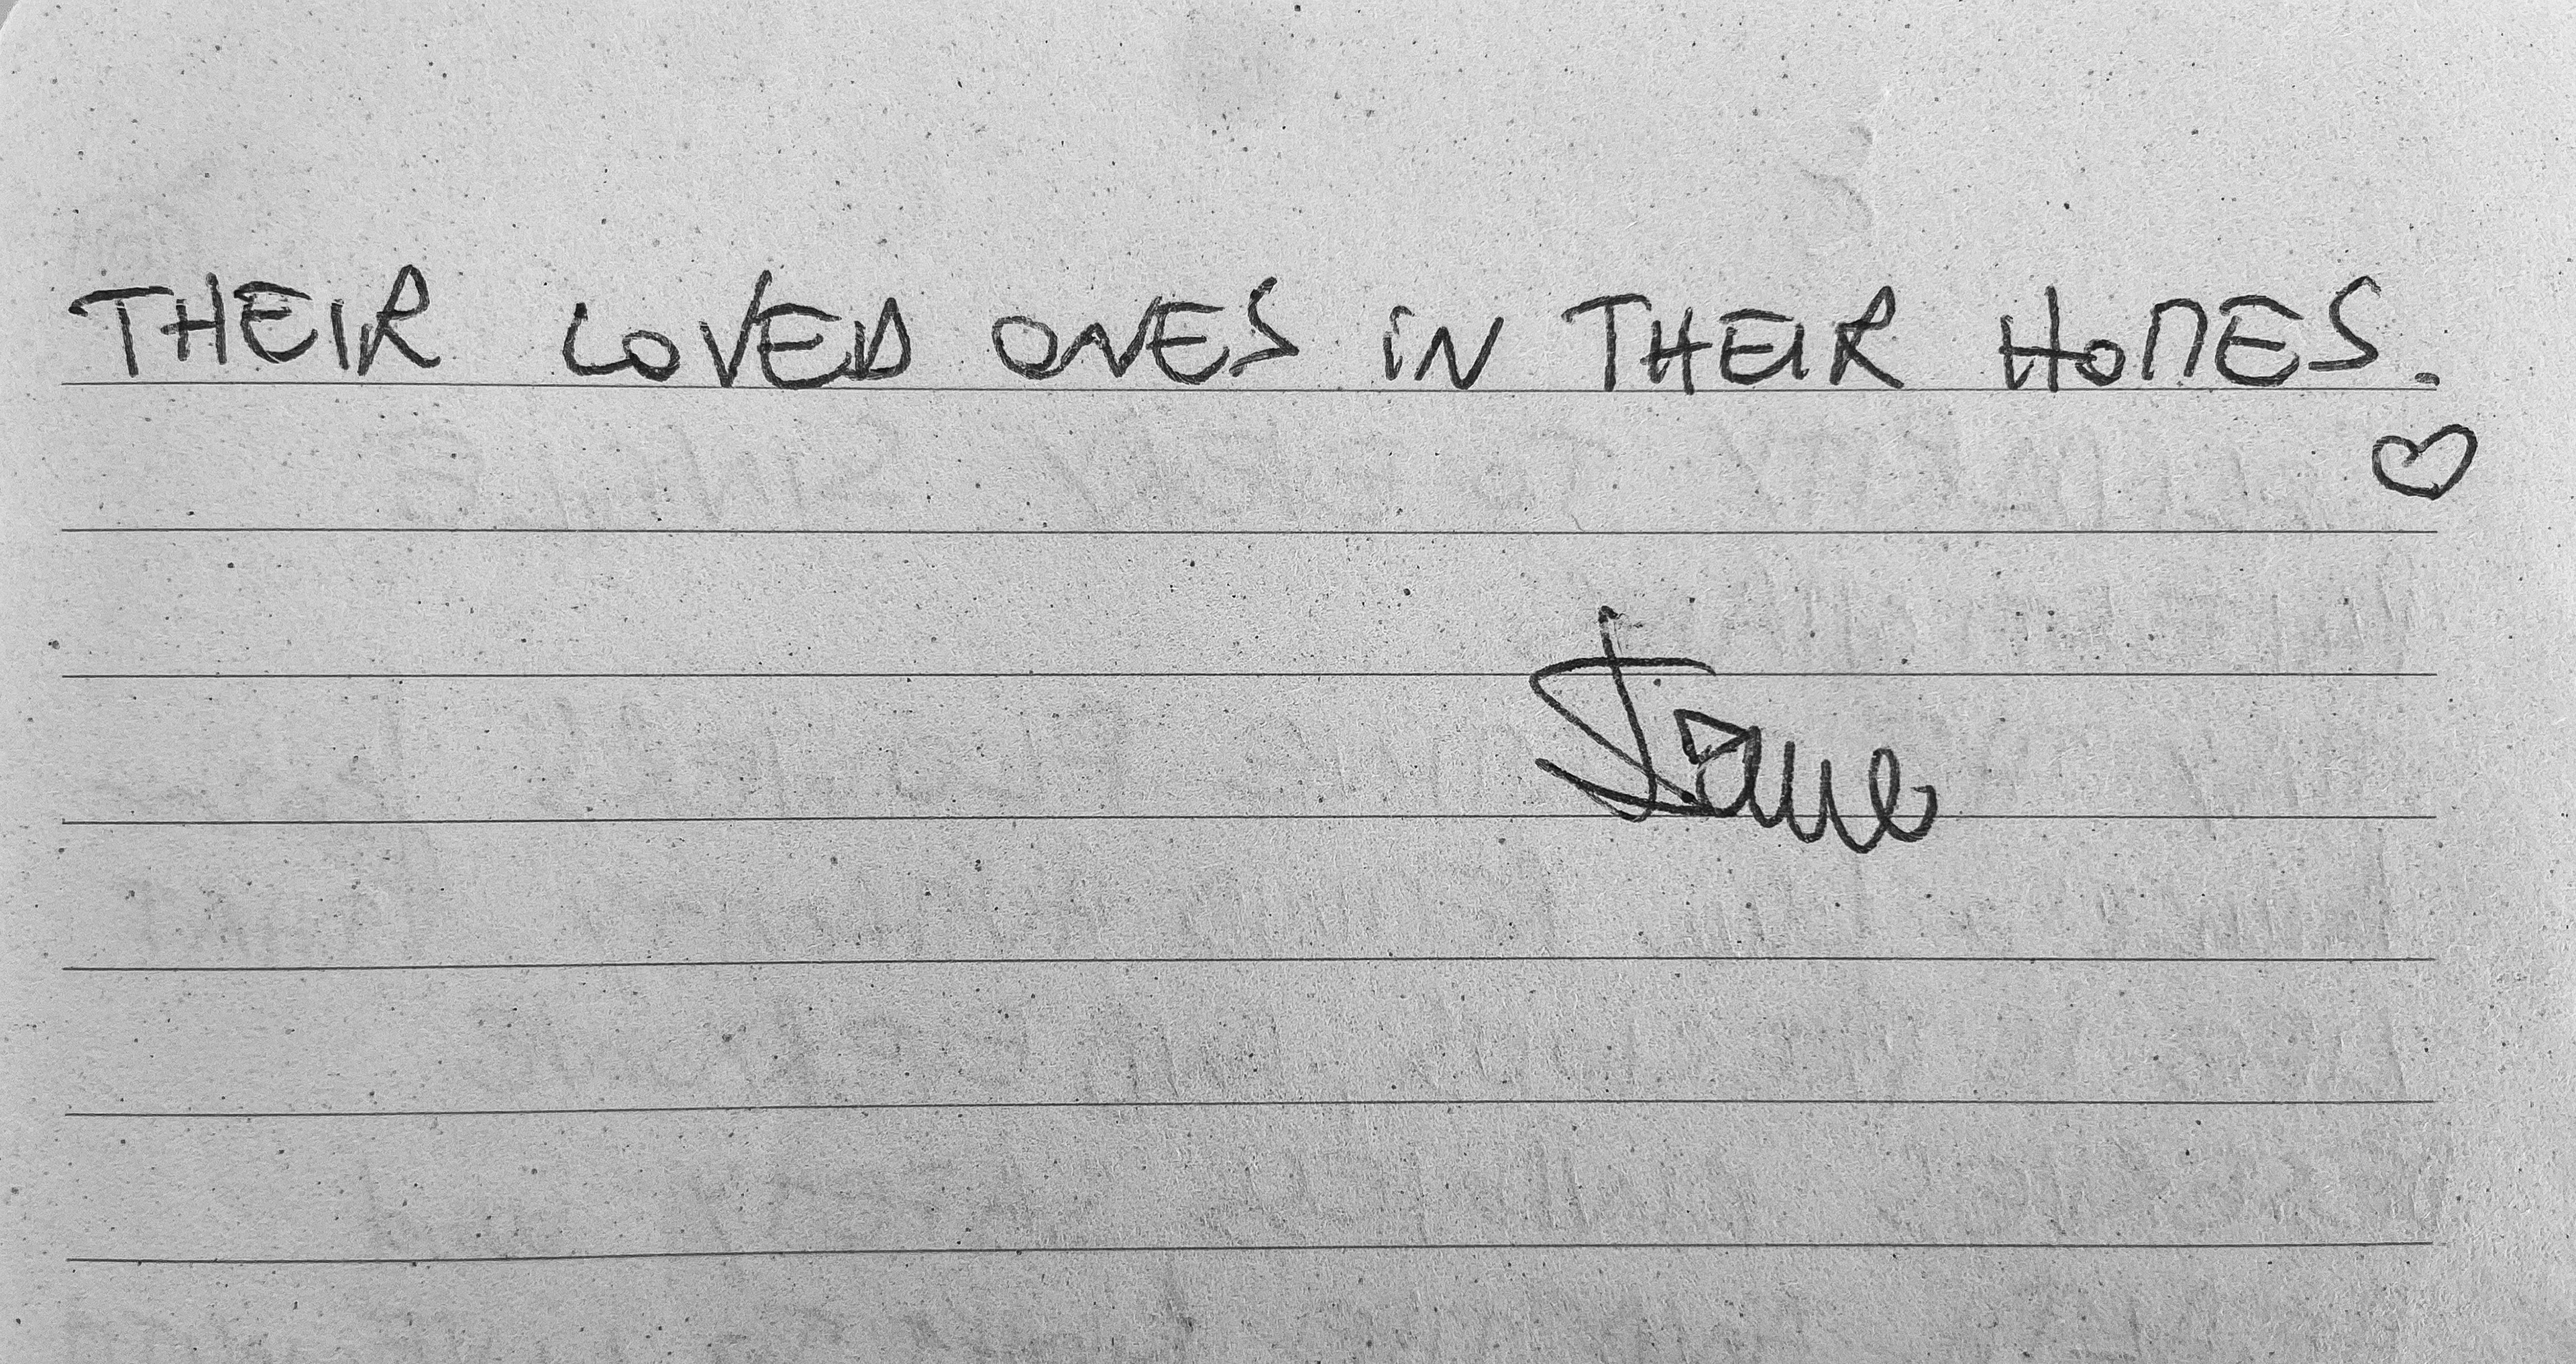 THEIR LOVED ONES IN THEIR HOMES.
♡